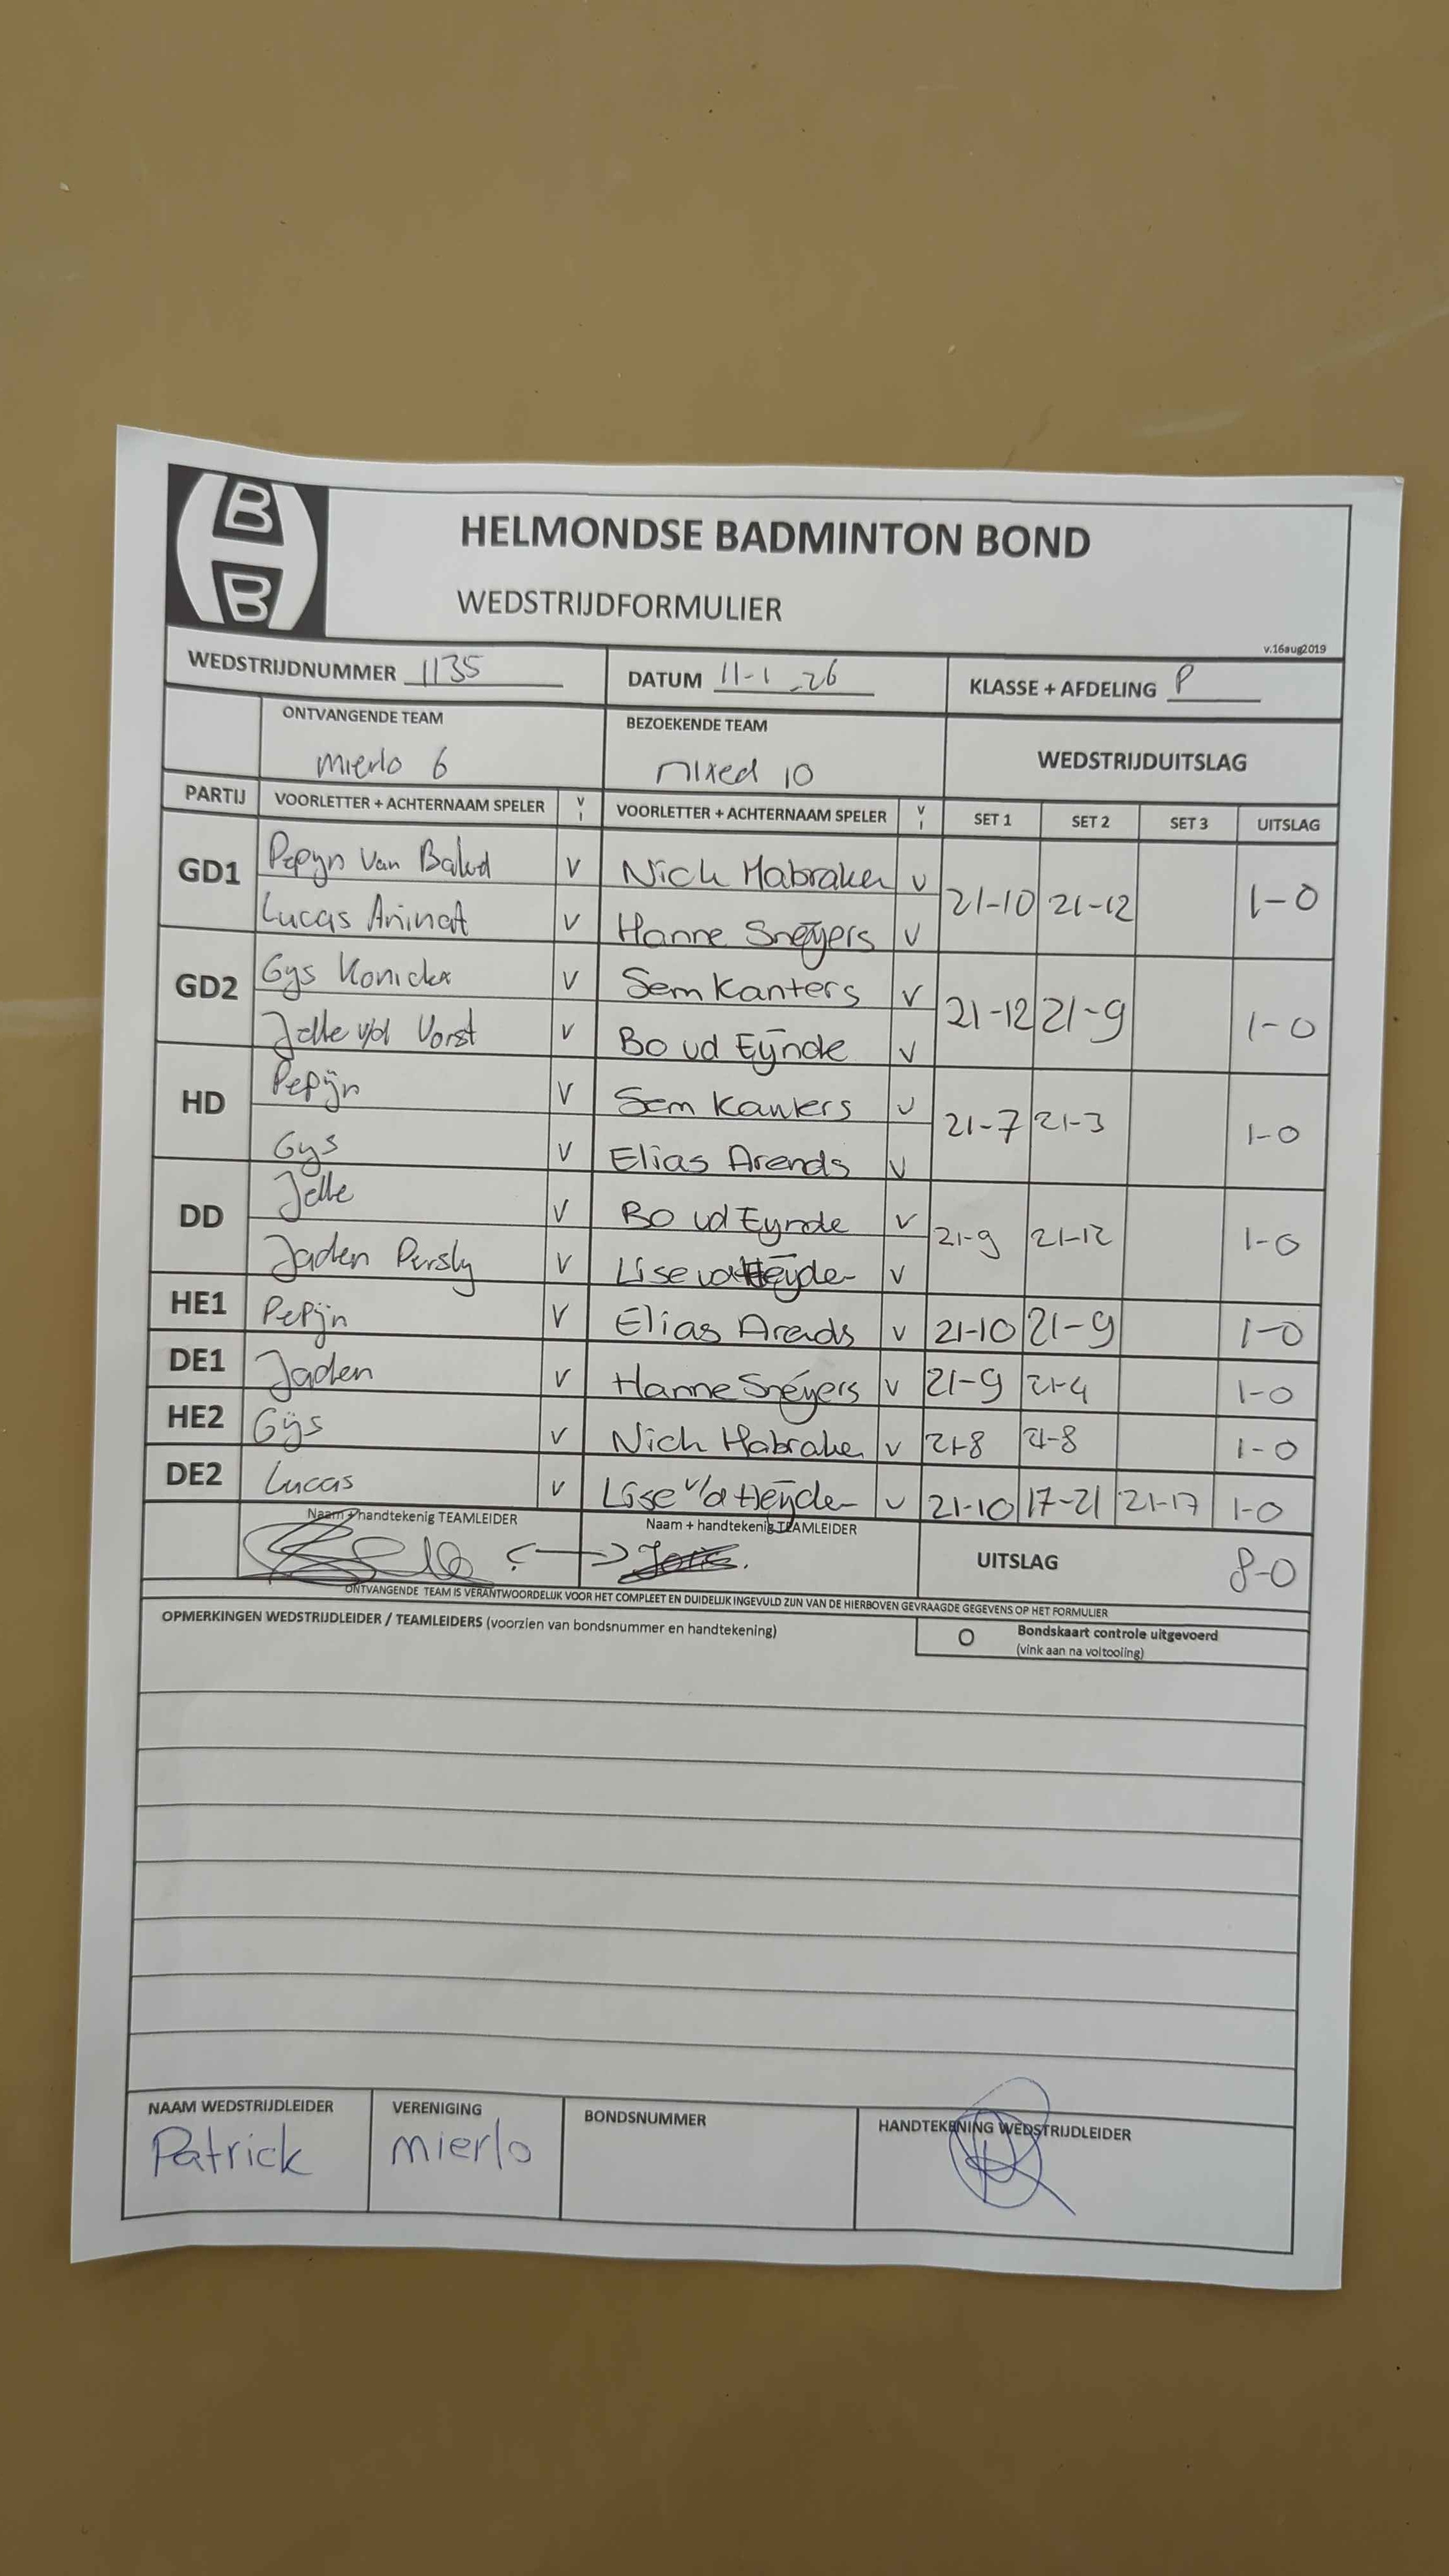 B
B
HELMONDSE BADMINTON BOND
WEDSTRIJDFORMULIER
v.16aug2019
WEDSTRIJDNUMMER 1135 DATUM 11-1-26 KLASSE + AFDELING P
ONTVANGENDE TEAM BEZOEKENDE TEAM WEDSTRIJDUITSLAG
Mierlo 6 Mixed 10
PARTIJ VOORLETTER + ACHTERNAAM SPELER V I VOORLETTER + ACHTERNAAM SPELER V I SET 1 SET 2 SET 3 UITSLAG
GD1 Pepyn Van V Nich Habraken V 21-10 21-12 1-0
Lucas Aninat V Hanne Sneijers V
GD2 Gys V Sem Kanters V 21-12 21-9 1-0
Jelle v/d Vorst V Bo vd Eijnde V
HD Pepijn V Sem Kanters V 21-7 21-3 1-0
Gys V Elias Arends V
DD Jelle V Bo vd Eynde V 21-9 21-12 1-0
Jaden V Lise vd Heijde V
HE1 Pepijn V Elias Arends V 21-10 21-9 1-0
DE1 Jaden V Hanne Sneijers V 21-9 21-4 1-0
HE2 Gijs V Nich Habraken V 21-8 21-8 1-0
DE2 Lucas V Lise v/d Heijde V 21-10 17-21 21-17 1-0
Naam + handtekenig TEAMLEIDER Naam + handtekenig TEAMLEIDER UITSLAG 8-0
Joris.
ONTVANGENDE TEAM IS VERANTWOORDELIJK VOOR HET COMPLEET EN DUIDELIJK INGEVULD ZIJN VAN DE HIERBOVEN GEVRAAGDE GEGEVENS OP HET FORMULIER
OPMERKINGEN WEDSTRIJDLEIDER / TEAMLEIDERS (voorzien van bondsnummer en handtekening)
O Bondskaart controle uitgevoerd
(vink aan na voltooiing)
NAAM WEDSTRIJDLEIDER VERENIGING BONDSNUMMER HANDTEKENING WEDSTRIJDLEIDER
Patrick mierlo